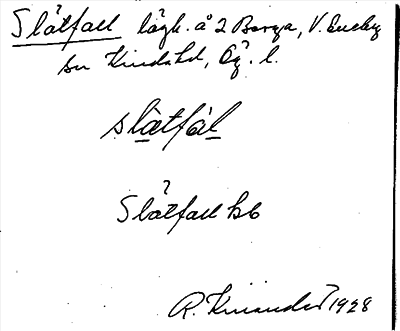 Slåtfall lägh. å 2 Borga, V. Eneby
sn Kinds hd, Ög. l.
slåtfàl
Slåtfall hb
R. Kinander 1928